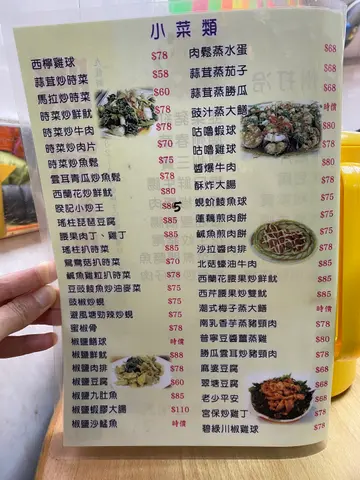 小菜類
西檸雞球 $78
蒜茸炒時菜 $58
馬拉炒時菜 $60
時菜炒鮮魷 $78
時菜炒牛肉 $78
時菜炒肉片 $70
時菜炒魚鬆 $75
雲耳青瓜炒魚鬆 $75
西蘭花炒鮮魷 $80
小炒王 $85
瑤柱琵琶豆腐 $85
腰果肉丁、雞丁 $85
瑤柱扒時菜 $85
鴛鴦菇扒時菜 $70
鹹魚雞粒扒時菜 $80
豆豉鯪魚炒油麥菜 $75
豉椒炒蜆 $75
避風塘勁辣炒蜆 $75
蜜椒骨 $78
椒鹽鱔球 時價
椒鹽鮮魷 $88
椒鹽肉排 $78
椒鹽豆腐 $60
椒鹽九肚魚 $85
椒鹽蝦膠大腸 $110
椒鹽沙鯭魚 時價
肉鬆蒸水蛋 $68
蒜茸蒸茄子 $68
蒜茸蒸勝瓜 $68
豉汁蒸大鱔 時價
咕嚕蝦球 $80
咕嚕雞球 $78
醬爆牛肉 $78
酥炸大腸 $80
蜆蚧鯪魚球 $75
蓮藕煎肉餅 $75
鹹魚煎肉餅 $75
沙拉醬肉排 $78
北菇蠔油牛肉 $85
西蘭花腰果炒鮮魷 $85
西芹腰果炒雙魷 $85
潮式梅子蒸大鱔 時價
南乳香芋蒸豬頸肉 $78
普寧豆醬薑蒸雞 $80
勝瓜雲耳炒豬頸肉 $78
麻婆豆腐 $68
翠塘豆腐 $68
老少平安 $68
宮保炒雞丁 $78
碧綠川椒雞球 $78